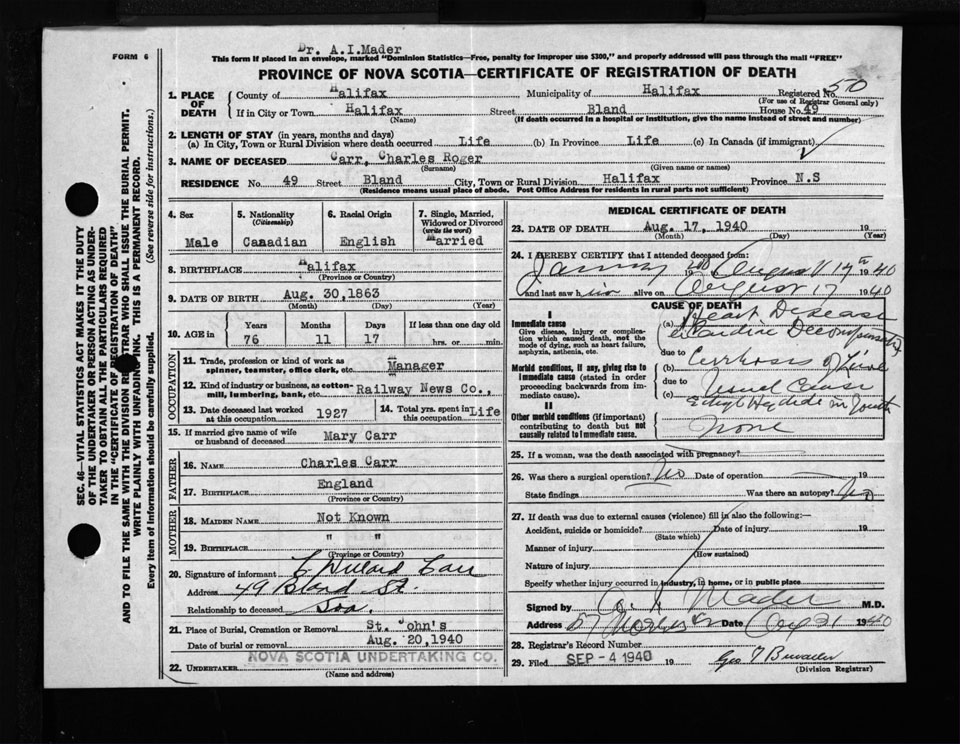 Dr. A.I.Mader
FORM 6
This form if placed in an envelope, marked "Dominion Statistics—Free, penalty for improper use $300," and properly addressed will pass through the mail "FREE"
PROVINCE OF NOVA SCOTIA—CERTIFICATE OF REGISTRATION OF DEATH
SEC. 46—VITAL STATISTICS ACT MAKES IT THE DUTY
OF THE UNDERTAKER OR PERSON ACTING AS UNDER-
TAKER TO OBTAIN ALL THE PARTICULARS REQUIRED
IN THE "CERTIFICATE OF REGISTRATION OF DEATH"
AND TO FILE THE SAME WITH THE DIVISION REGISTRAR WHO SHALL ISSUE THE BURIAL PERMIT.
WRITE PLAINLY WITH UNFADING INK. THIS IS A PERMANENT RECORD.
Every item of information should be carefully supplied. (See reverse side for instructions.)
1. PLACE OF DEATH
County of Halifax Municipality of Halifax Registered No. 510
(For use of Registrar General only)
If in City or Town Halifax Street Bland House No. 49
(Name) (If death occurred in a hospital or institution, give the name instead of street and number)
2. LENGTH OF STAY (in years, months and days)
(a) In City, Town or Rural Division where death occurred Life (b) In Province Life (c) In Canada (if immigrant)
3. NAME OF DECEASED Carr, Charles Roger
(Surname) (Given name or names)
RESIDENCE No. 49 Street Bland City, Town or Rural Division Halifax Province N.S
(Residence means usual place of abode. Post Office Address for residents in rural parts not sufficient)
4. Sex
Male
5. Nationality
(Citizenship)
Canadian
6. Racial Origin
English
7. Single, Married,
Widowed or Divorced
(write the word)
Married
8. BIRTHPLACE Halifax
(Province or Country)
9. DATE OF BIRTH Aug. 30,1863
(Month) (Day) (Year)
10. AGE in
Years Months Days If less than one day old
76 11 17 hrs. or min.
OCCUPATION
11. Trade, profession or kind of work as
spinner, teamster, office clerk, etc. Manager
12. Kind of industry or business, as cotton-
mill, lumbering, bank, etc. Railway News Co.,
13. Date deceased last worked
at this occupation 1927
14. Total yrs. spent in
this occupation Life
15. If married give name of wife
or husband of deceased Mary Carr
FATHER
16. NAME Charles Carr
17. BIRTHPLACE England
(Province or Country)
MOTHER
18. MAIDEN NAME Not Known
19. BIRTHPLACE " "
(Province or Country)
20. Signature of informant Willard Carr
Address 49 Bland St.
Relationship to deceased Son.
21. Place of Burial, Cremation or Removal St. John's
Date of burial or removal Aug. 20,1940
22. UNDERTAKER NOVA SCOTIA UNDERTAKING CO.
(Name and address)
MEDICAL CERTIFICATE OF DEATH
23. DATE OF DEATH Aug. 17, 1940
(Month) (Day) (Year)
24. I HEREBY CERTIFY that I attended deceased from:
19 August 17th 1940
and last saw him alive on August 17 1940
CAUSE OF DEATH
I
Immediate cause
Give disease, injury or complica-
tion which caused death, not the
mode of dying, such as heart failure,
asphyxia, asthenia, etc.
Morbid conditions, if any, giving rise to
immediate cause (stated in order
proceeding backwards from im-
mediate cause).
II
Other morbid conditions (if important)
contributing to death but not
causally related to immediate cause.
(a) Heart Disease
Cardiac Decompensation
due to
(b) Cirrhosis of Liver
due to
(c) Usual Cause
in youth
None
25. If a woman, was the death associated with pregnancy?
26. Was there a surgical operation? No Date of operation 19
State findings Was there an autopsy? No
27. If death was due to external causes (violence) fill in also the following:—
Accident, suicide or homicide? Date of injury 19
(State which)
Manner of injury
(How sustained)
Nature of injury
Specify whether injury occurred in industry, in home, or in public place
Signed by A. I. Mader M.D.
Address 57 Date Aug 21 1940
28. Registrar's Record Number
29. Filed SEP - 4 1940 19
(Division Registrar)